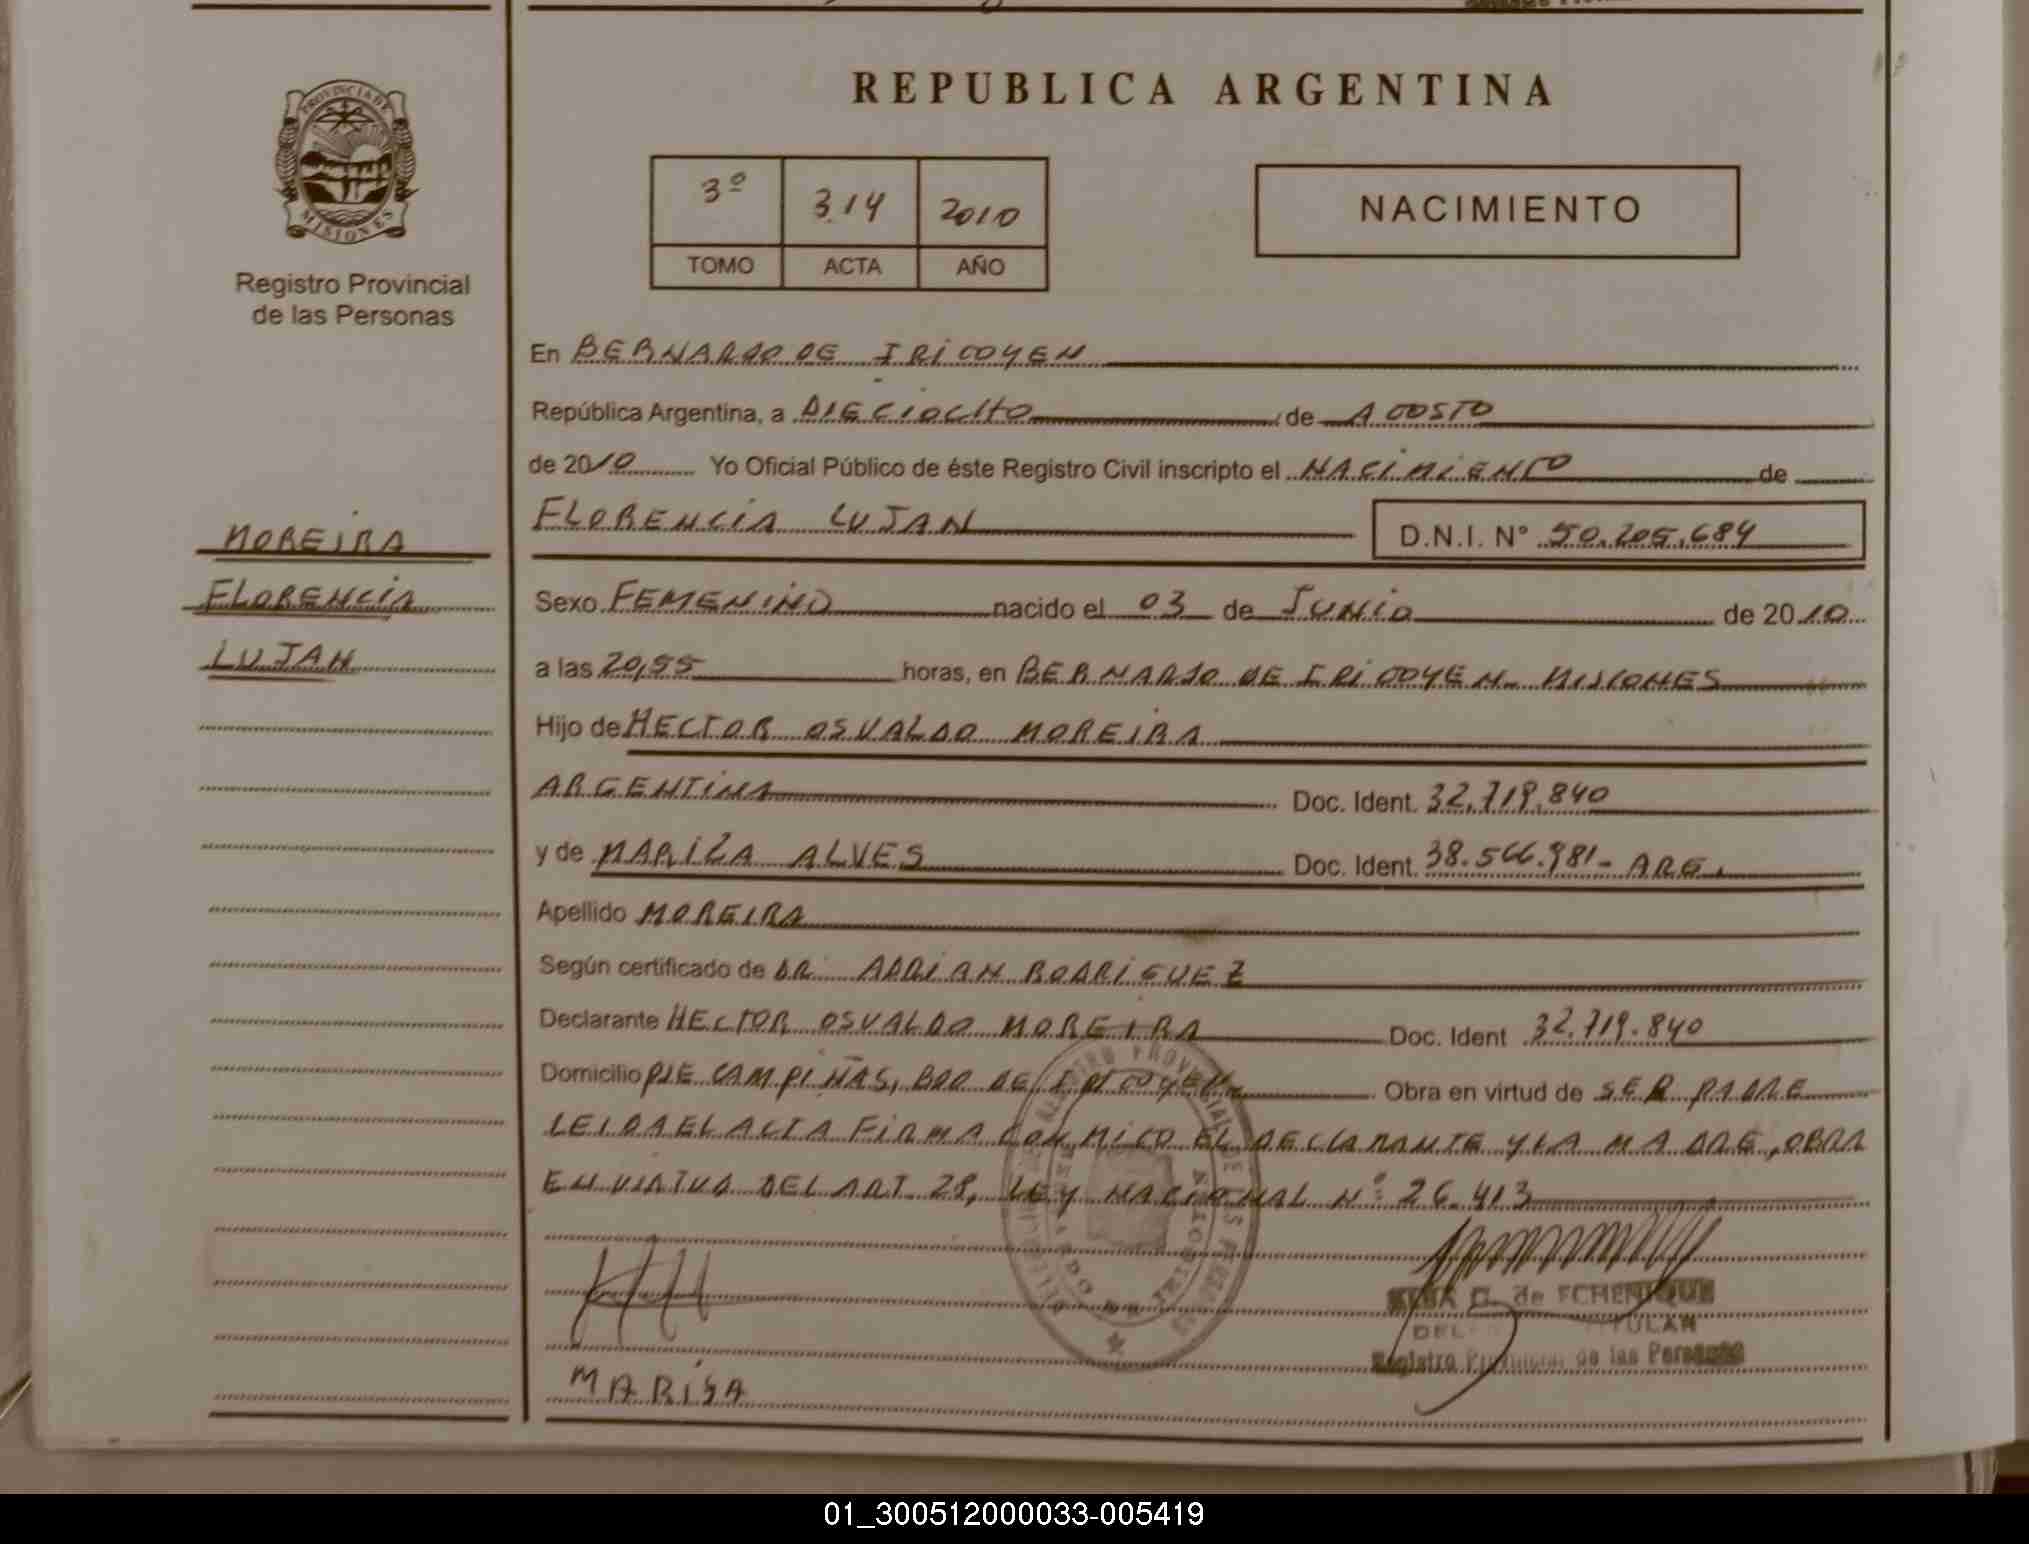 PROVINCIA DE
MISIONES
Registro Provincial
de las Personas
MOREIRA
FLORENCIA
LUJAN
REPUBLICA ARGENTINA
3º 314 2010
TOMO ACTA AÑO
NACIMIENTO
En BERNARDO DE IRIGOYEN
República Argentina, a DIECIOCHO de AGOSTO
de 2010 Yo Oficial Público de éste Registro Civil inscripto el NACIMIENTO de
FLORENCIA LUJAN D.N.I. Nº 50.205.684
Sexo FEMENINO nacido el 03 de JUNIO de 2010
a las 20,55 horas, en BERNARDO DE IRIGOYEN - MISIONES
Hijo de HECTOR OSVALDO MOREIRA
ARGENTINA Doc. Ident. 32.719.840
y de MARIZA ALVES Doc. Ident. 38.566.981- ARG.
Apellido MOREIRA
Según certificado de DR. ADRIAN RODRIGUEZ
Declarante HECTOR OSVALDO MOREIRA Doc. Ident 32.719.840
Domicilio PJE CAMPIÑAS, BDO DE IRIGOYEN Obra en virtud de SER PADRE
LEIDA EL ACTA FIRMA CONMIGO EL DECLARANTE Y LA MADRE, OBRA
EN VIRTUD DEL ART. 28, LEY NACIONAL Nº 26.413
de ECHENIQUE
TITULAR
Registro Provincial de las Personas
MARISA
01_300512000033-005419